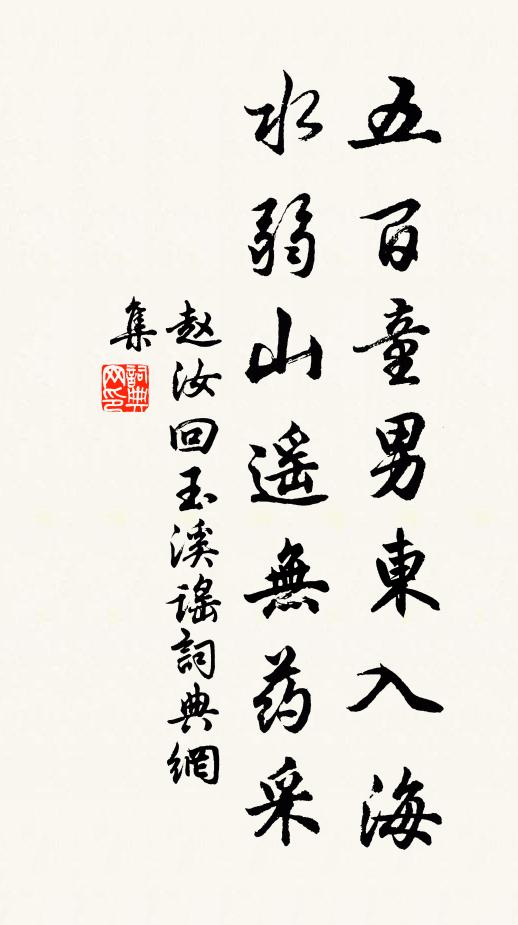 五百童男東入海
水弱山遥無药采
赵汝回玉溪谣詞典網
集
詞典
网印